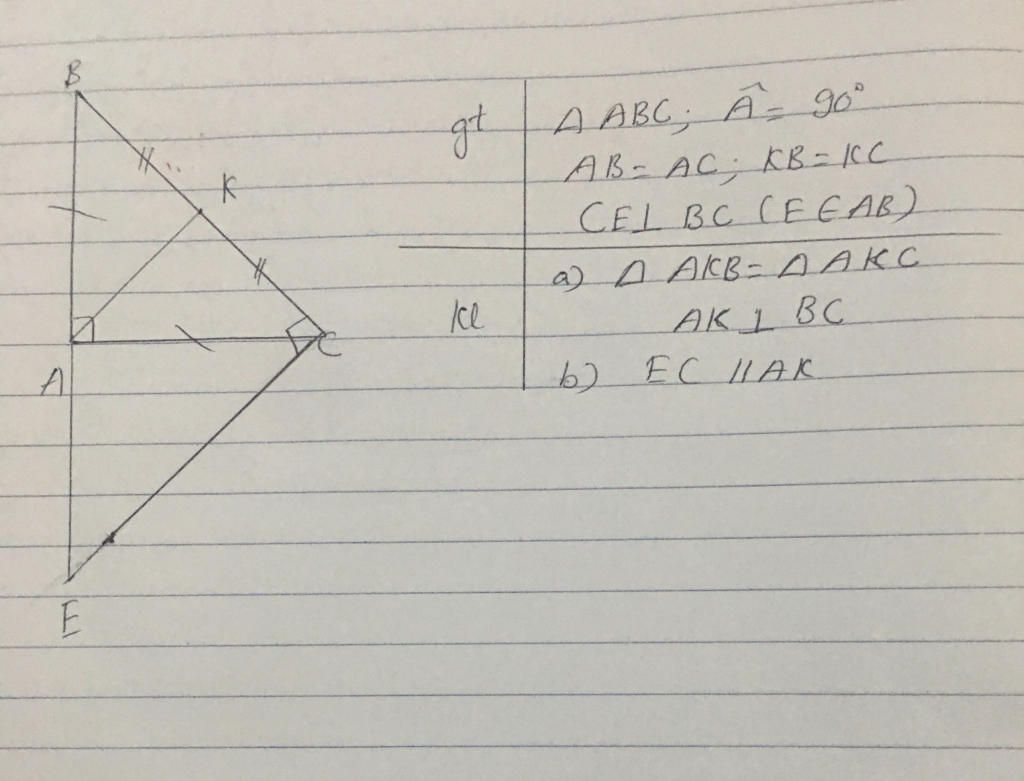 B
K
A
C
E
gt
Δ ABC; Â = 90°
AB = AC; KB = KC
CE ⊥ BC (E ∈ AB)
kl
a) Δ AKB = Δ AKC
AK ⊥ BC
b) EC // AK